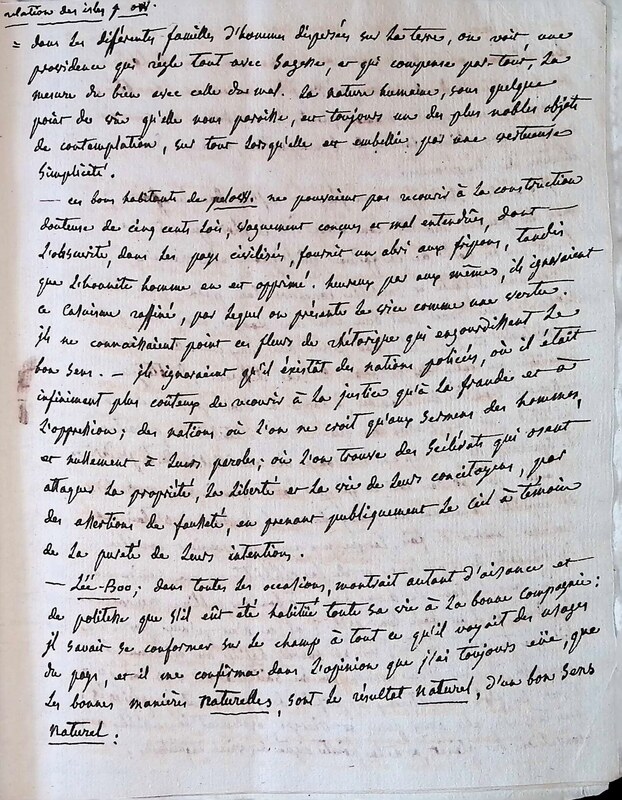 relation des isles p
= dans les différentes familles d'hommes dispersées sur la terre, on voit une
providence qui règle tout avec Sagesse, et qui compense par-tout, la
mesure du bien avec celle du mal. La nature humaine, sous quelque
point de vüe qu'elle nous paroisse, est toujours un des plus nobles objets
de contemplation, sur tout lorsqu'elle est embellie par une vertueuse
Simplicité.
— ces bons habitants de ne pouvaient pas recourir à la construction
douteuse de cinq cents lois, vaguement conçues et mal entendües, dont —
L'obscurité, dans les pays civilisés, fournit un abri aux fripons, tandis
que L'honnête homme en est opprimé. heureux par eux mêmes, ils ignoraient
ce Casuisme raffiné, par lequel on présente le vice comme une vertu.
ils ne connaissaient point ces fleurs de rhétorique qui engourdissent le
bon Sens. — ils ignoraient qu'il éxistât des nations policées, où il était
infiniment plus couteux de recourir à la justice qu'à la fraude et à
L'oppression; des nations où L'on ne croit qu'aux Sermens des hommes,
et nullement à Leurs paroles; où L'on trouve des Scélérats qui osent
attaquer la propriété, la Liberté et la vie de Leurs concitoyens, par
des assertions de fausseté, en prenant publiquement le Ciel à témoin
de la pureté de Leurs intentions.
— Lée-Boo; dans toutes les occasions, montrait autant d'aisance et
de politesse que s'il eût été habitüé toute sa vie à la bonne Compagnie:
il savait se conformer sur le champ à tout ce qu'il voyait des usages
du pays, et il me confirma dans L'opinion que j'ai toujours eüe, que
les bonnes manières naturelles, sont le résultat naturel, d'un bon Sens
naturel.